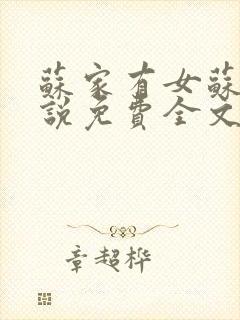 蘇家有女蘇
說免費全文
章超桦